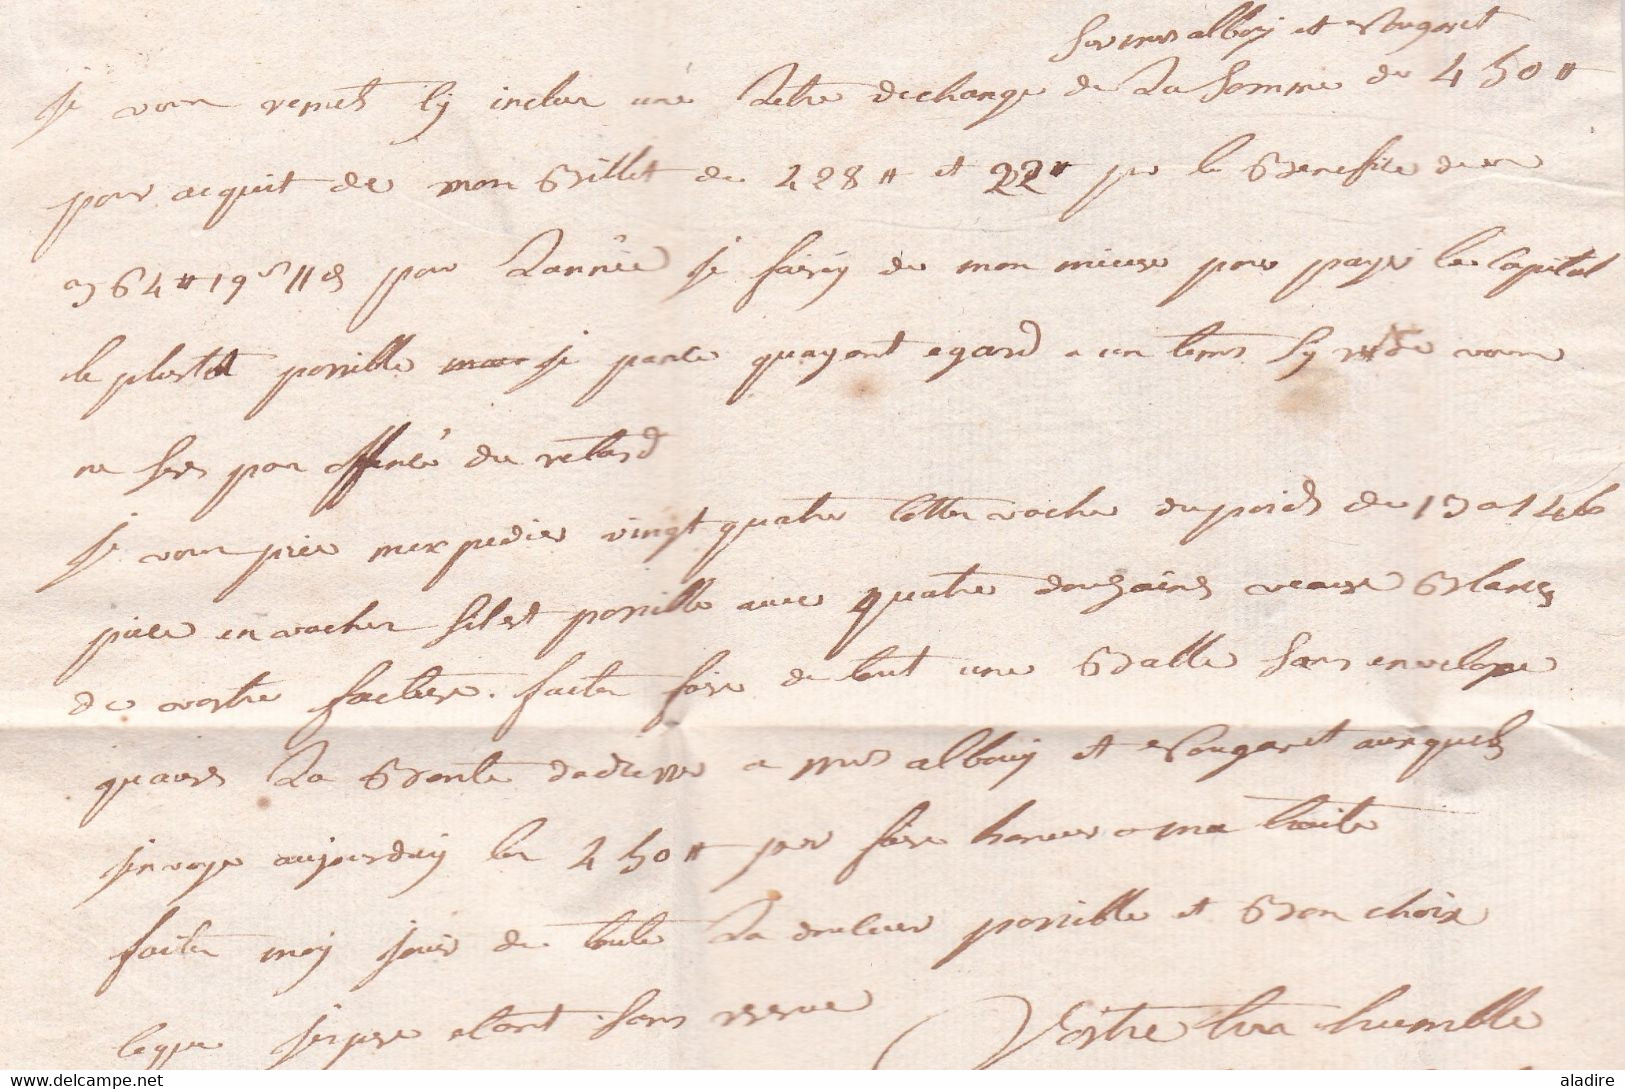 sur mrs alboy et Rougaret
je vous remets cy inclus une Letre dechange de La Somme de 450 #
pour acquit de mon Billet de 428 # et 22 # pr le Benefice de
364 # 19 s 11 d pour Lannée je fairéy de mon mieux pour payer le Capital
le plustot possible mais je panse quayant egard a un tems Sy vous
ne serés pas offencé du retard
je vous prie mexpedier vingt quatre vache du poids de 13 a 14 lb
piece en vaches sil est possible avec quatre douzaines veaux Blancs
de vostre facture. faites faire du tout une Balle sans envelope
quaurés La Bonté dadresser a mrs alboüy et Rougaret auxquels
jenvoye aujourduy les 450 # pour faire honeur a ma traite
faites moy jouir de toute La douceur possible et Bon choix
jespere etant sans reserve
Vostre tres humble
aladire